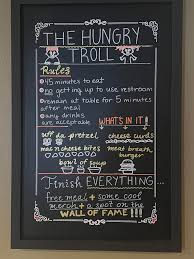 THE HUNGRY
TROLL
Rules
45 minutes to eat
no getting up to use restroom
remain at table for 5 minutes
after meal
any drinks
are acceptable
WHAT'S IN IT!
puff da pretzel
cheese curds
mac n cheese bites
meat breath
burger
bowl of soup
Finish EVERYTHING...
free meal + some cool
merch + a spot on the
WALL OF FAME!!!